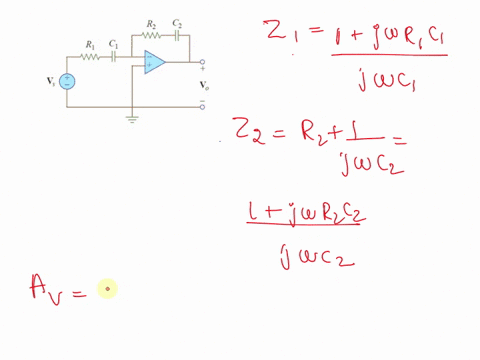 R₂ C₂
R₁ C₁
Vₛ
+
Vₒ
−
Z₁ = 1 + jωR₁C₁ / jωC₁
Z₂ = R₂ + 1 / jωC₂ =
1 + jωR₂C₂ / jωC₂
A_V =